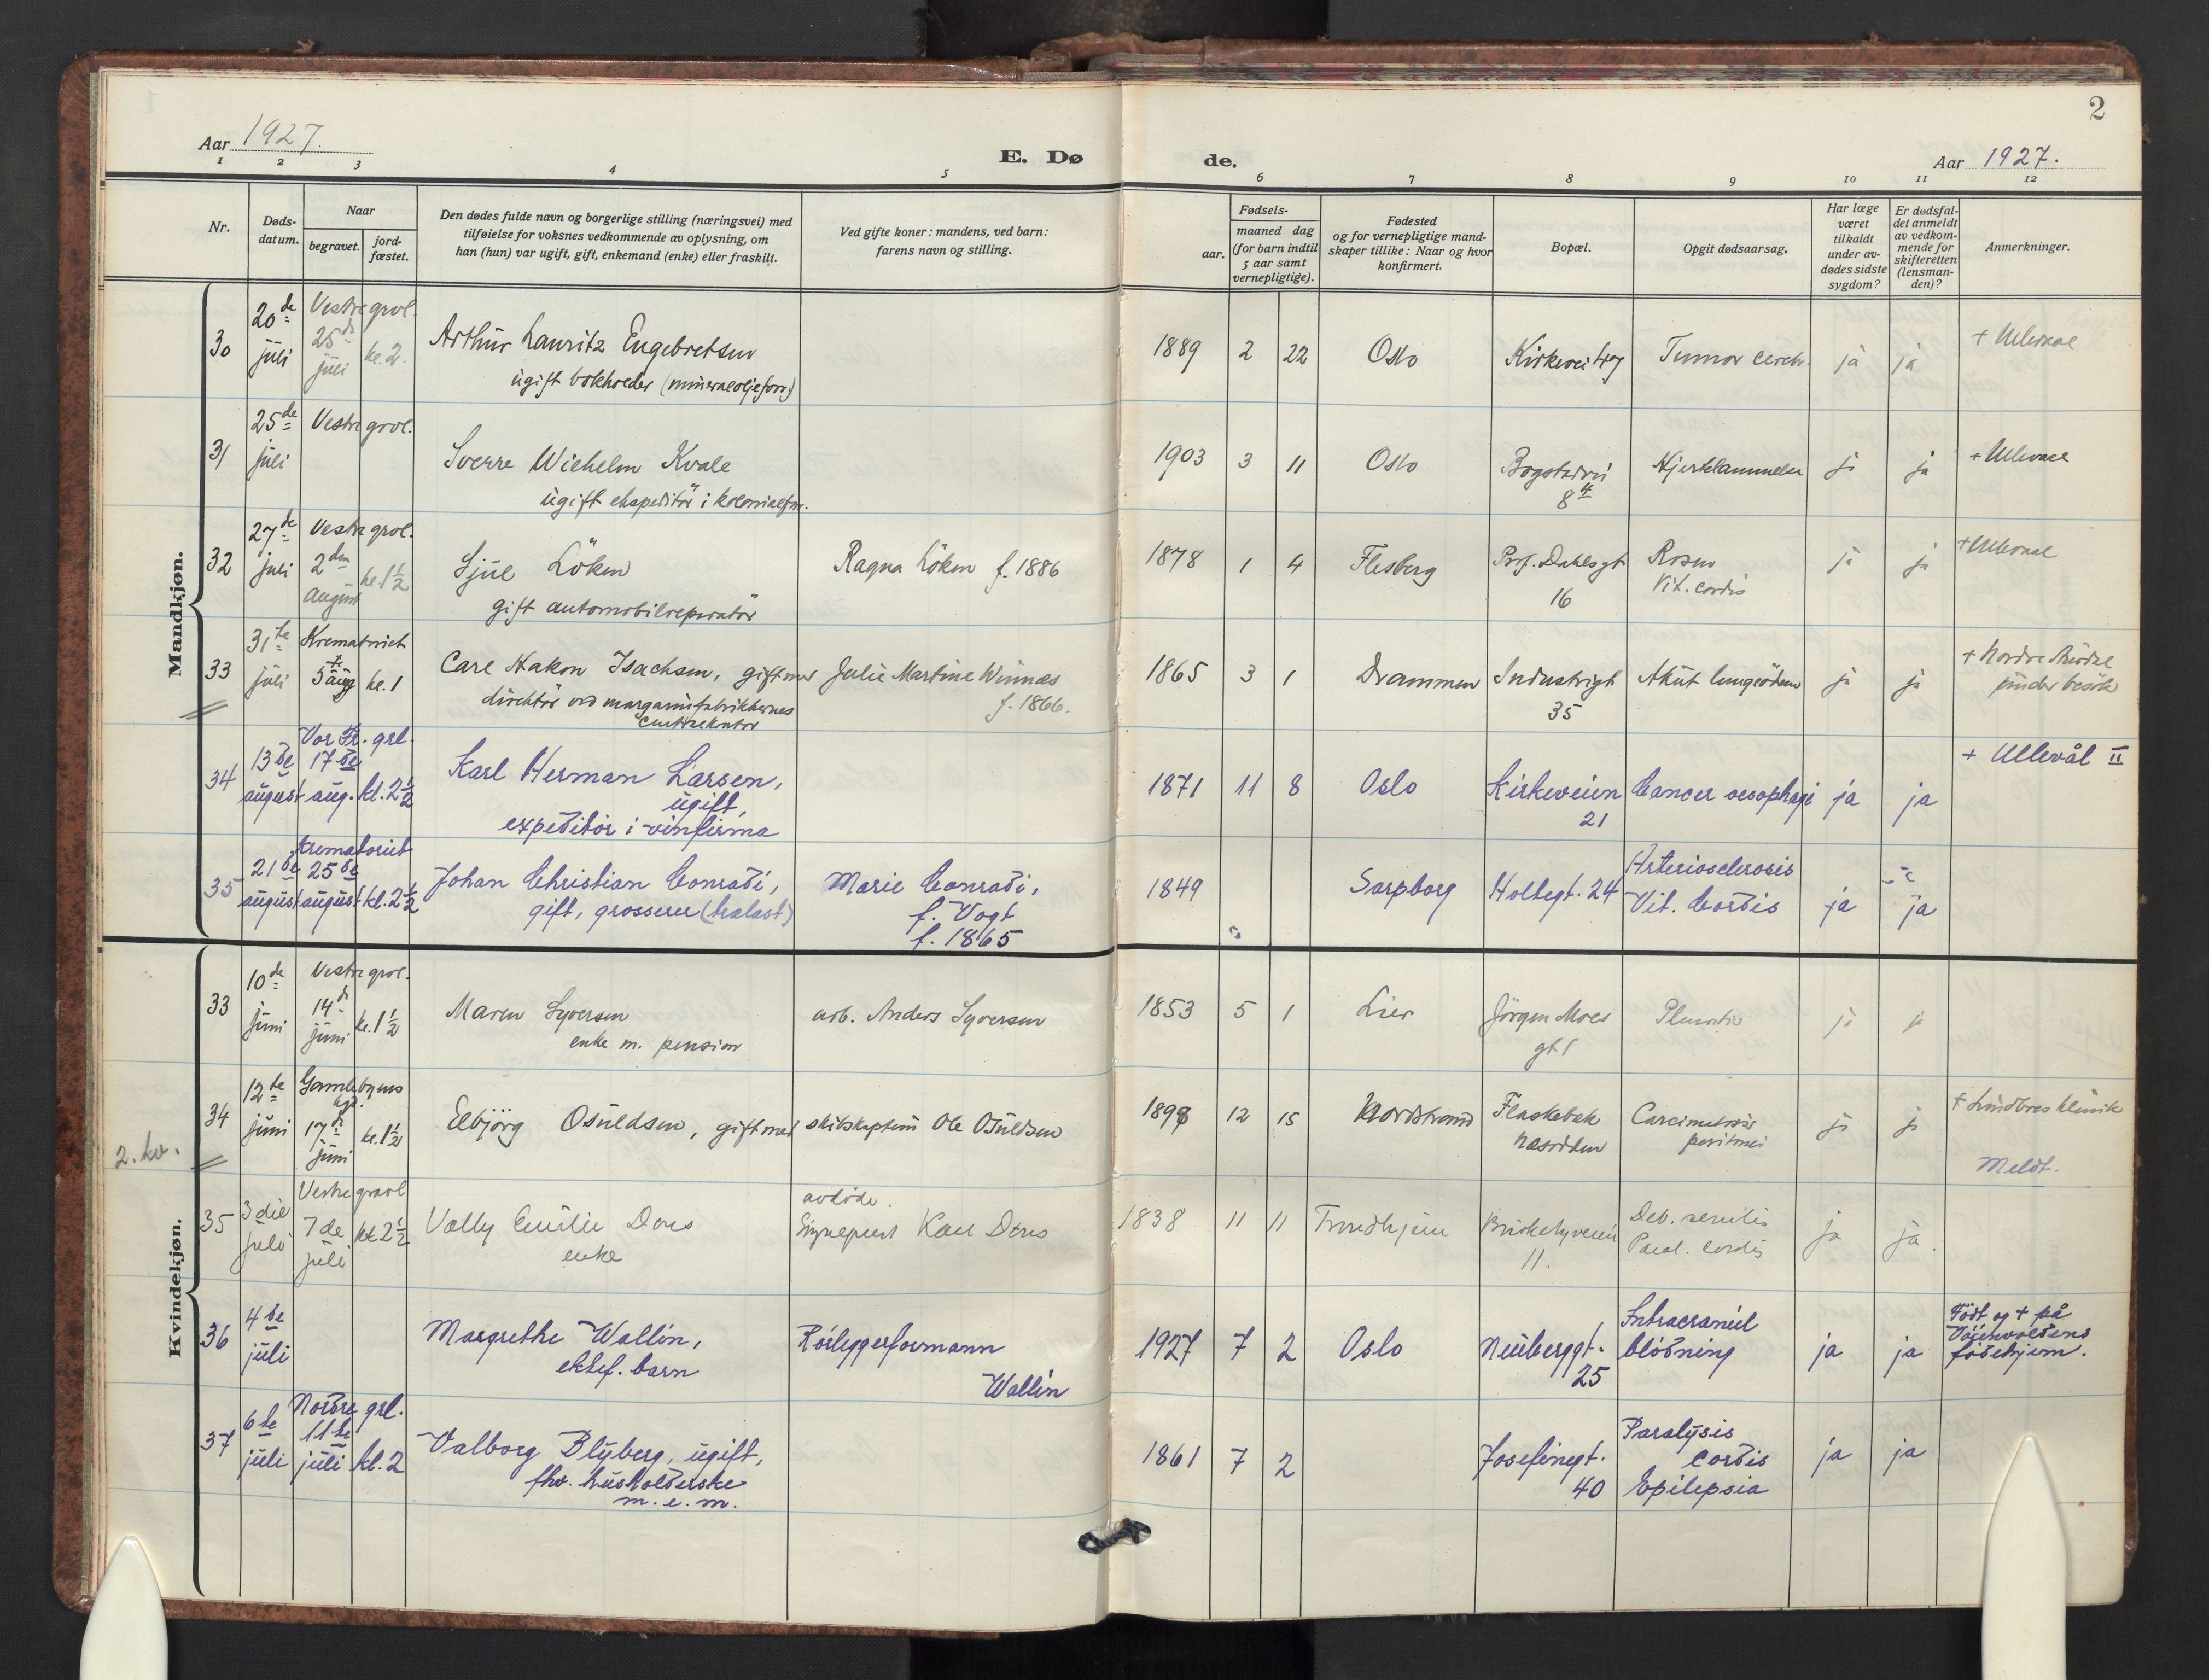 2
Aar 1927.
E. Dø
de.
Aar 1927.
1 2 3 4 5 6 7 8 9 10 11 12
Nr.
Døds-
datum.
Naar
begravet.
jord-
fæstet.
Den dødes fulde navn og borgerlige stilling (næringsvei) med
tilføielse for voksnes vedkommende av oplysning, om
han (hun) var ugift, gift, enkemand (enke) eller fraskilt.
Ved gifte koner: mandens, ved barn:
farens navn og stilling.
Fødsels-
aar.
maaned dag
(for barn indtil
5 aar samt
vernepligtige).
Fødested
og for vernepligtige mand-
skaper tillike: Naar og hvor
konfirmert.
Bopæl.
Opgit dødsaarsag.
Har læge
været
tilkaldt
under av-
dødes sidste
sygdom?
Er dødsfal-
det anmeldt
av vedkom-
mende for
skifteretten
(lensman-
den)?
Anmerkninger.
Mandkjøn.
30
20de juli
Vestre gravl.
25de juli kl. 2.
Arthur Lauritz Engebretsen
ugift bokholder (mineraloljeforr.)
1889 2 22 Oslo
Tumor cerebr.
ja ja
+ Ullevaal
31
25de juli
Vestre gravl.
Sverre Wilhelm Kvale
ugift ekspeditör i kolonialfor.
1903 3 11 Oslo
Bogstadvei
8 4
Hjertelammelse
ja ja
+ Ullevaal
32
27de juli
Vestre gravl.
2den august kl. 1 1/2
Sjul Löken
gift automobilreparatör
Ragna Löken f. 1886
1878 1 4 Flesberg
Prof. Dahlsgt
16
Rosen
Vit. cordis
ja ja
+ Ullevaal
33
31te juli
Krematoriet
5te aug kl. 1
Carl Hakon Isachsen, gift med
direktör ved margarinfabrikkernes
centralkontor
Julie Martine Winnæs
f. 1866.
1865 3 1 Drammen
Industrigt
35
Akut lungeödem
ja ja
+ Nordre
under besök
34
13de august
Vor Fr. grl.
17de aug. kl. 2 1/2
Karl Herman Larsen,
ugift,
expeditör i vinfirma
1871 11 8 Oslo
Kirkeveien
21
Cancer oesophagi
ja ja
+ Ullevål II
35
21de august
Krematoriet
25de august kl. 2 1/2
Johan Christian Conradi,
gift, grosserer (trælast)
Marie Conradi,
f. Vogt
f. 1865
1849
Sarpborg
Holtegt. 24
Arteriosclerosis
Vit. Cordis
ja ja
Kvindekjøn.
33
10de juni
Vestre gravl.
14de juni kl. 1 1/2
Maren Syversen
enke m. pension
arb. Anders Syversen
1853 5 1 Lier
Jörgen Moes
gt 1
ja ja
2. kv.
34
12te juni
Gamlebyens
17de juni kl. 1 1/2
Elbjörg Osuldsen, gift med
skibskaptein Ole Osuldsen
1898 12 15 Nordstrand
Flaskebek
Nesodden
peritonei
ja ja
+ Lindbæs klinik
Meldt.
35
3die juli
Vestre gravl
7de juli kl 2 1/2
Vally Emilie Dons
enke
avdöde.
Karl Dons
1838 11 11 Trondhjem
Briskebyveien
11.
Deb. senilis
Paral. cordis
ja ja.
36
4de juli
Margrethe Wallin,
ektef. barn
Rörleggerformann
Wallin
1927 7 2 Oslo
Neuberggt.
25
Intracraniel
blödning
ja ja
Födt og + på
Vöienvoldens
födehjem.
37
6te juli
Nordre grl.
11te juli kl. 2
Valborg Blyberg, ugift,
fhv. husholderske
m. e. m.
1861 7 2
Josefinegt.
40
Paralysis
cordis
Epilepsia
ja ja